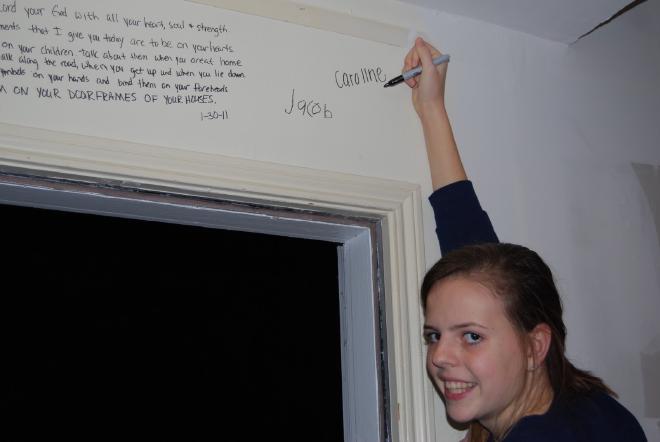 Lord your God with all your heart, soul & strength.
ments that I give you today are to be on your hearts
on your children. talk about them when you are at home
alk along the road, when you get up and when you lie down.
symbols on your hands and bind them on your foreheads
M ON YOUR DOORFRAMES OF YOUR HOUSES.
1-30-11
Caroline
Jacob